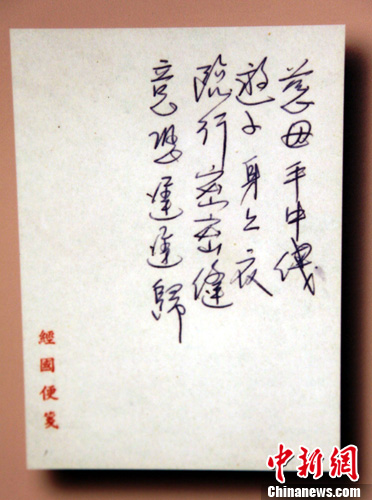 慈母手中線
遊子身上衣
臨行密密縫
意恐遲遲歸
經國便箋
中新網